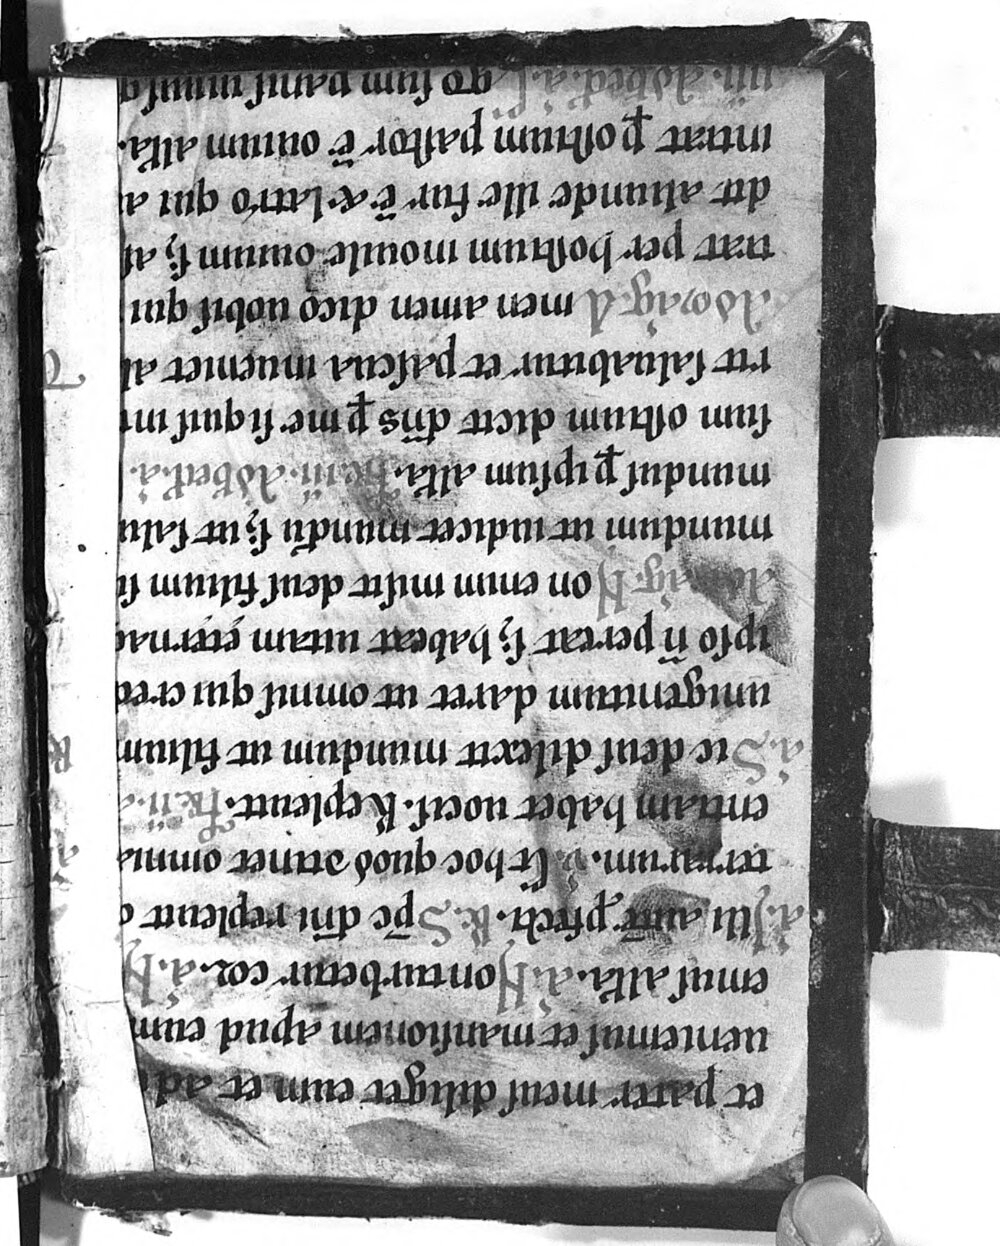 et pater meus diliget eum et ad
ueniemus et mansionem apud eum
emus alla. a. Non turbetur cor. a. N
a. Illi aut̄ ꝓfecti. R. Sp̄c dn̄i repleuit o
terrarum. v. Et hoc quod ꝯtinet omnia
entiam habet uocis. Repleuit. Fr̄ ii. a
a. Sic deus dilexit mundum ut filium
unigenitum daret ut omnis qui cred
ipso n̄ pereat s; habeat uitam ęterna
Ad mag. Non enim misit deus filium su
mundum ut iudicet mundū s; ut salu
mundus ꝑ ipsum alla. Fr̄ iii. Ad bed̄. a.
sum ostium dicit dn̄s ꝑ me siquis int
rit saluabitur et pascua inueniet al
Ad mag. A men amen dico uobis qui
trat per hostium in ouile ouium s; as
dit aliunde ille fur ē & latro qui a
intrat ꝑ ostium pastor ē ouium alla.
iiii. Ad bed̄. a. Ego sum panis uiuus q